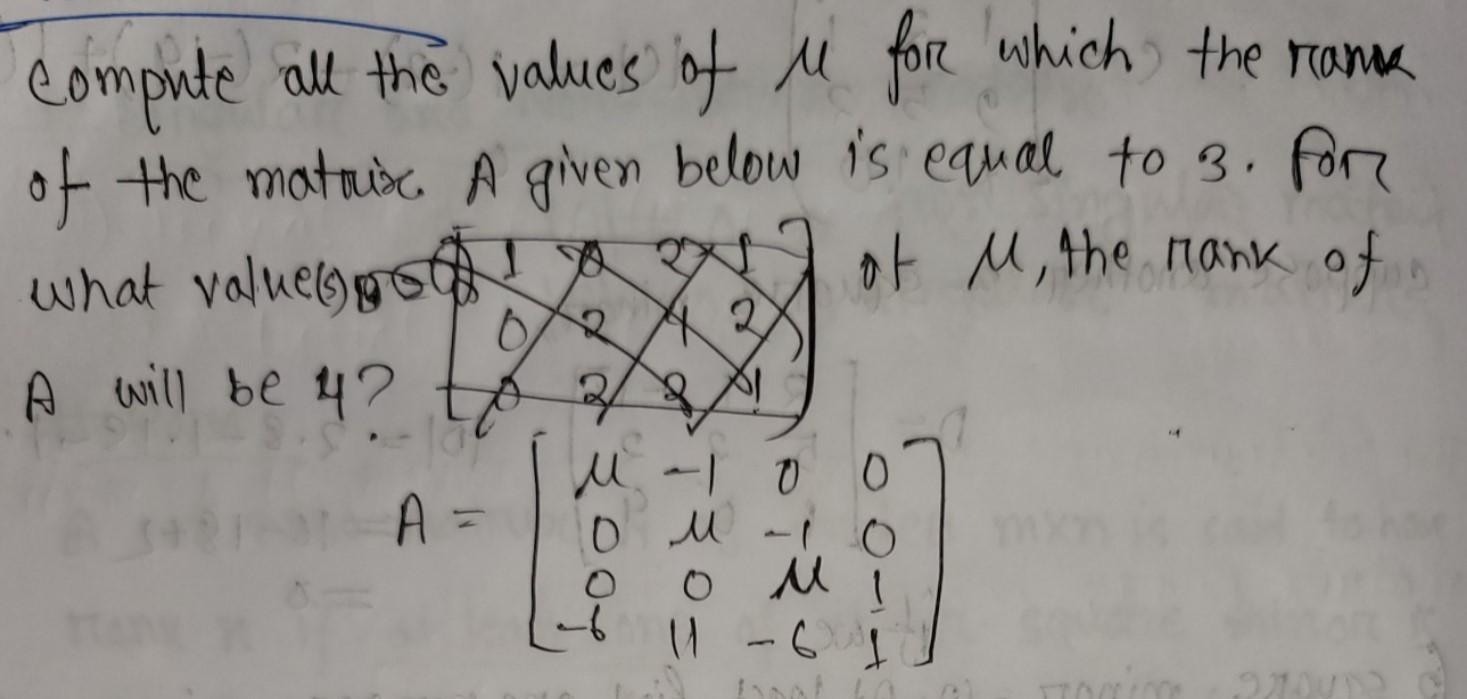 Compute all the values of μ for which the rank
of the matrix A given below is equal to 3. For
what value(s) of μ, the rank of
A will be 4?
1 2 1
0 2 4 2
0 2 2 1
A = [ μ -1 0 0
0 μ -1 0
0 0 μ 1
-6 11 -6 1 ]